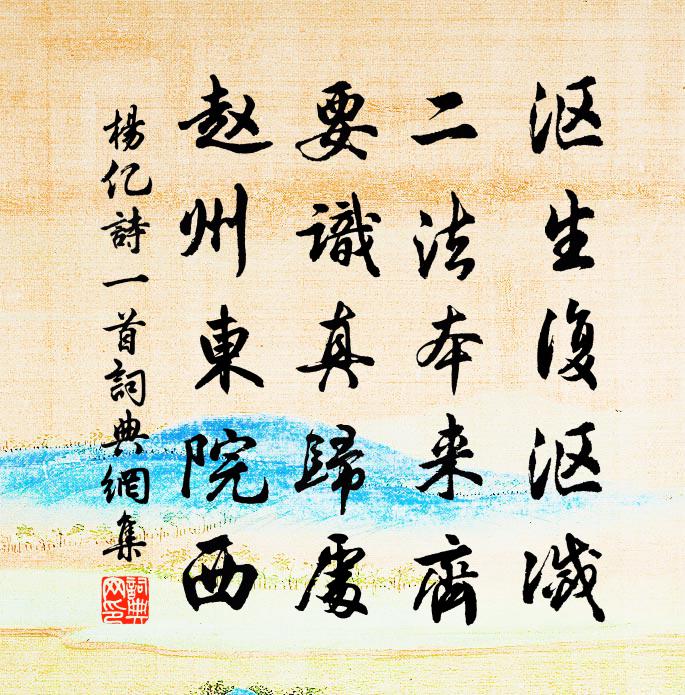 沤生復沤滅
二法本来齊
要識真歸處
赵州東院西
楊亿詩一首詞典網集
詞典网印